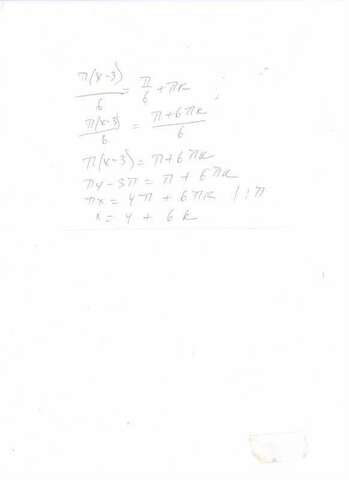 π(x-3)/6 = π/6 + πk
π(x-3)/6 = π+6πk/6
π(x-3) = π+6πk
πx-3π = π + 6πk
πx = 4π + 6πk |:π
x = 4 + 6k